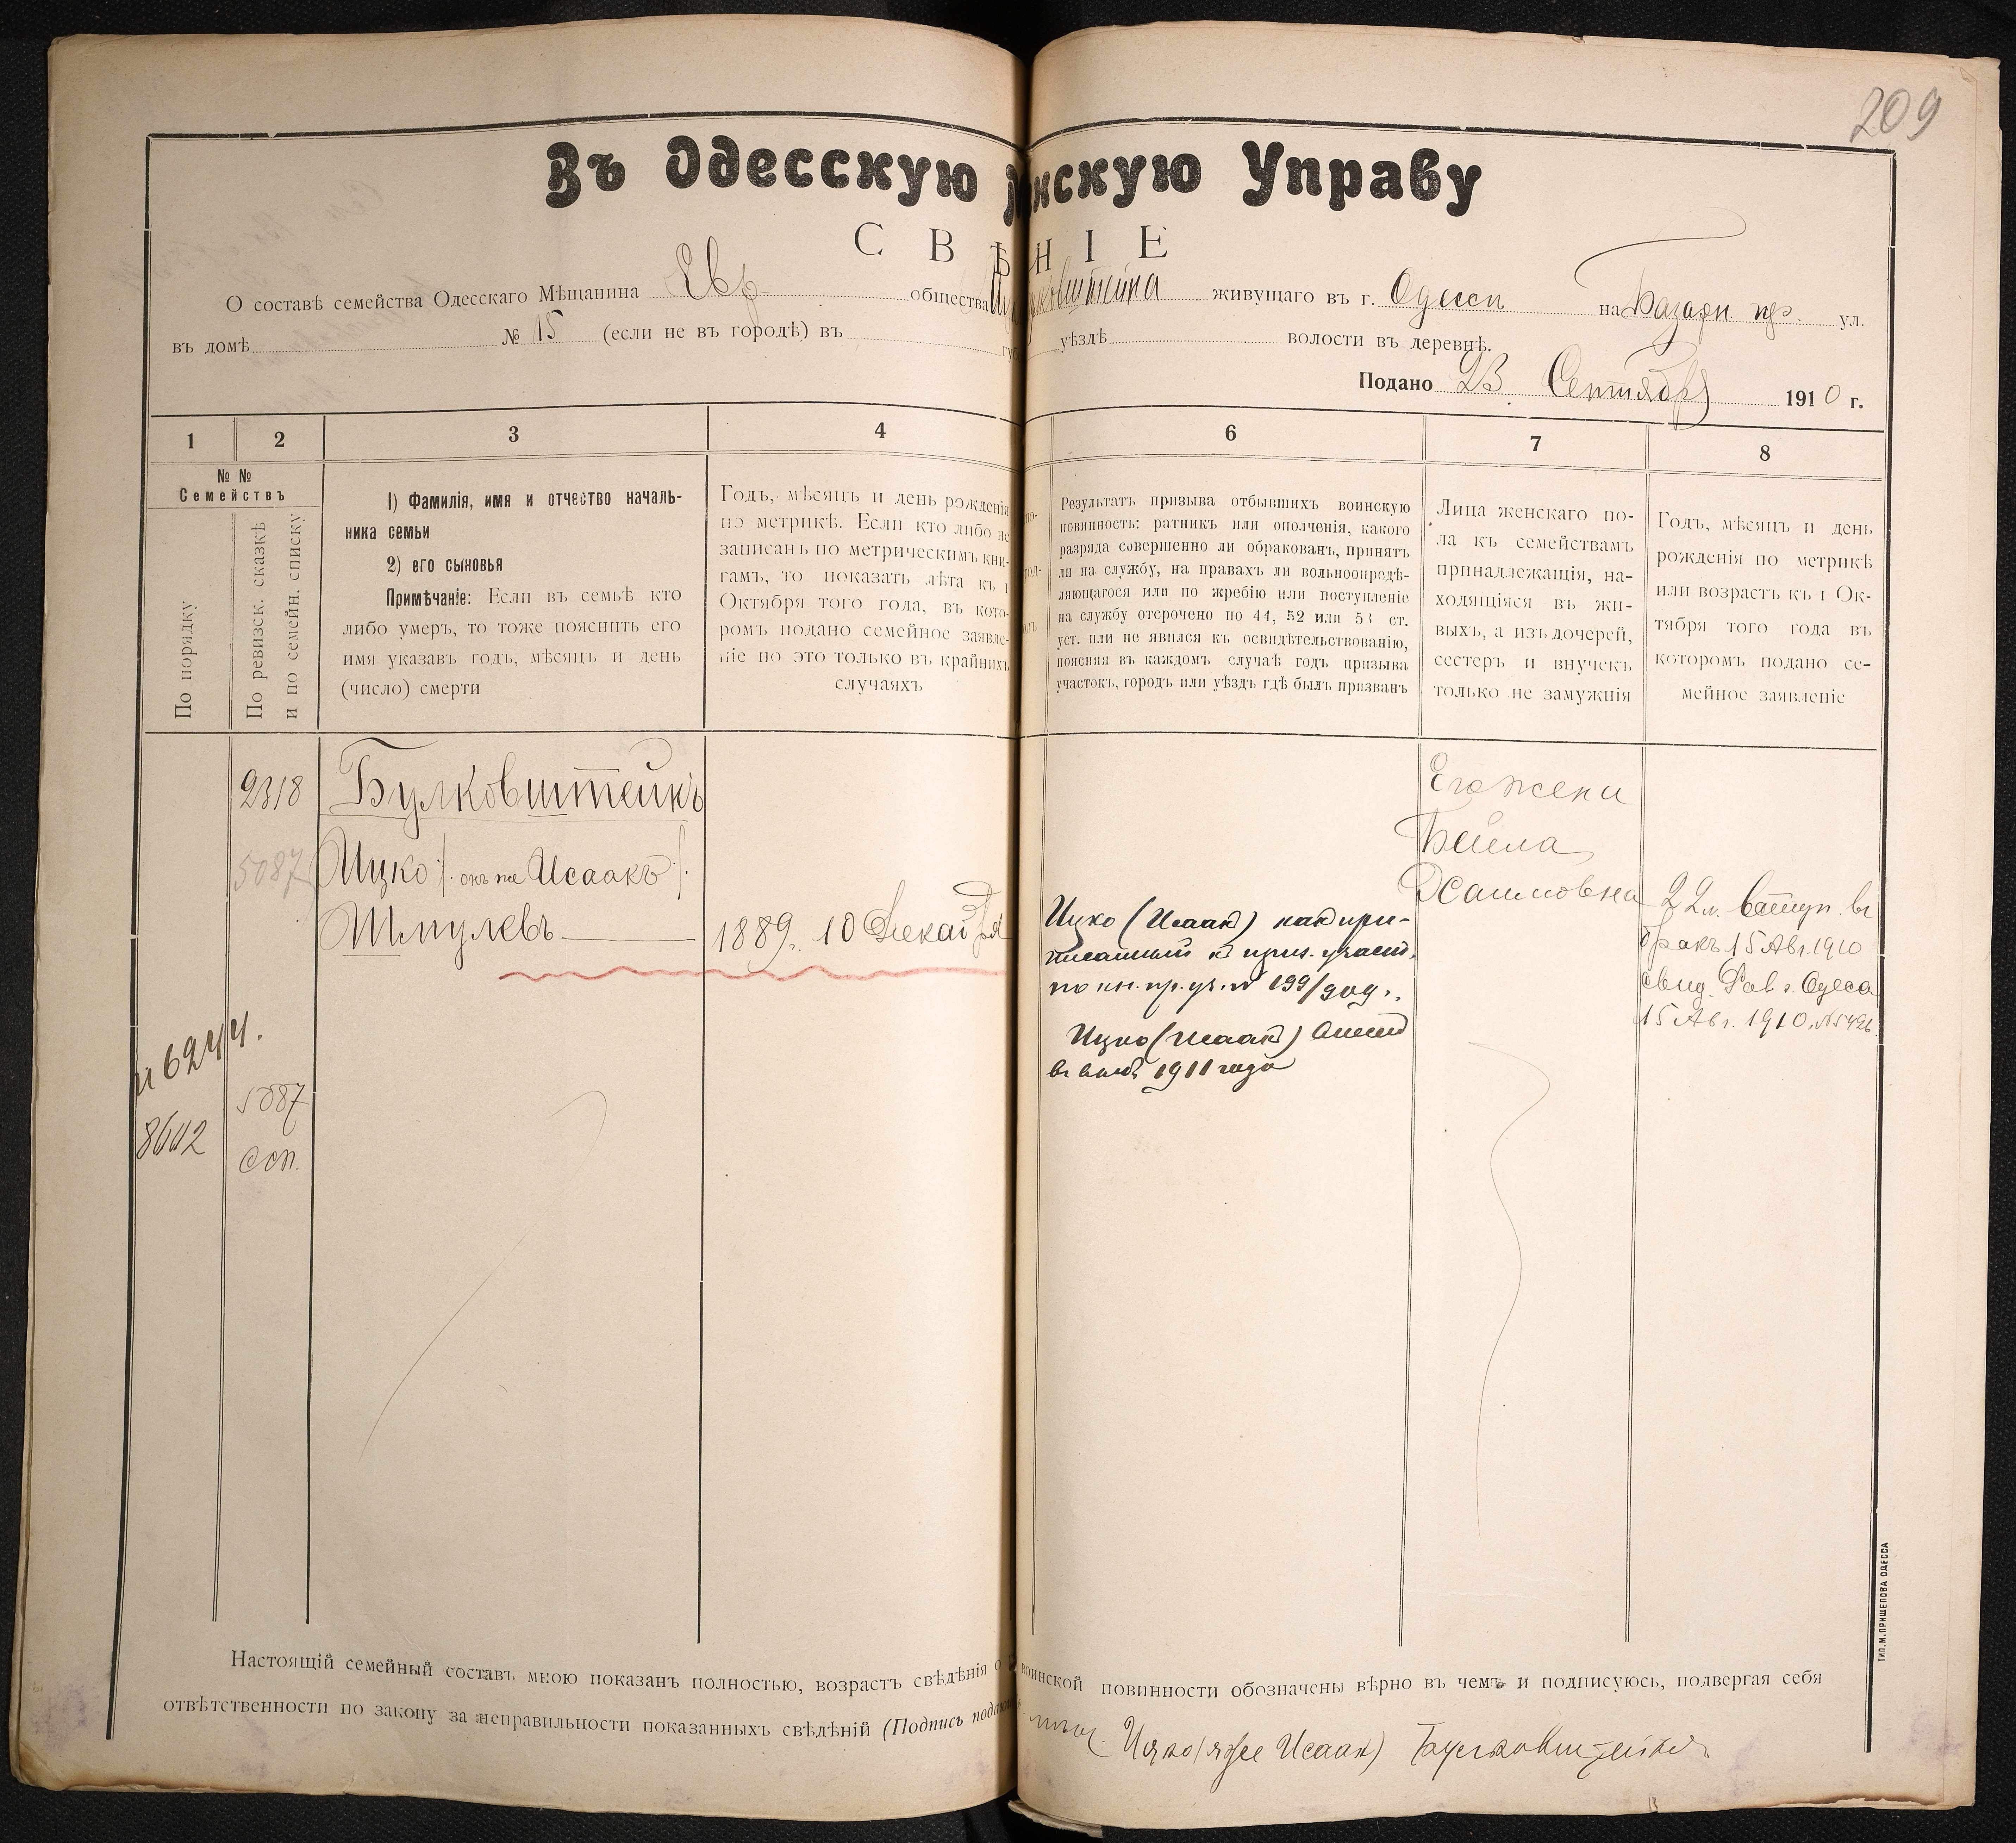 209
Въ Одесскую нскую Управу
С В Ѣ Н І Е
О составѣ семейства Одесскаго Мѣщанина Евр общества живущаго въ г. Одессѣ на Базарн. пр. ул.
въ домѣ № 15 (если не въ городѣ) въ уѣздѣ волости въ деревнѣ.
Подано 23 Сентября 1910 г.
1 2 3 4 6 7 8
№ №
Семействъ
По порядку
По ревизск. сказкѣ
и по семейн. списку
1) Фамилія, имя и отчество началь-
ника семьи
2) его сыновья
Примѣчаніе: Если въ семьѣ кто
либо умеръ, то тоже пояснить его
имя указавъ годъ, мѣсяцъ и день
(число) смерти
Годъ, мѣсяцъ и день рожденія
по метрикѣ. Если кто либо не
записанъ по метрическимъ кни-
гамъ, то показать лѣта къ 1
Октября того года, въ кото-
ромъ подано семейное заявле-
ніе но это только въ крайнихъ
случаяхъ
Результатъ призыва отбывшихъ воинскую
повинность: ратникъ или ополченія, какого
разряда совершенно ли обракованъ, принятъ
ли на службу, на правахъ ли вольноопредѣ-
ляющагося или по жребію или поступленіе
на службу отсрочено по 44, 52 или 53 ст.
уст. или не явился къ освидѣтельствованію,
поясняя въ каждомъ случаѣ годъ призыва
участокъ, городъ или уѣздъ гдѣ былъ призванъ
Лица женскаго по-
ла къ семействамъ
принадлежащія, на-
ходящіяся въ жи-
выхъ, а изъ дочерей,
сестеръ и внучекъ
только не замужнія
Годъ, мѣсяцъ и день
рожденія по метрикѣ
или возрастъ къ 1 Ок-
тября того года въ
которомъ подано се-
мейное заявленіе
2318
5087
Булковштейнъ
Ицко (онъ же Исаакъ)
Шмулевъ
1889. 10 Декабря
Ицко (Исаакъ) как при-
писанный к приз. участ.
по кн. пр. уч. № 199/909 г.
Ицко (Исаакъ)
1911 года
Его жена
Бейла
Хаимовна
22 л. Вступ. въ
бракъ 15 Авг. 1910
свид. Рав г. Одесса
15 Авг. 1910 №
№ 6244.
8602
5087
соп.
Настоящій семейный составъ мною показанъ полностью, возрастъ свѣдѣнія о воинской повинности обозначены вѣрно въ чемъ и подписуюсь, подвергая себя
отвѣтственности по закону за неправильности показанныхъ свѣдѣній (Подпись
Ицко (онже Исаак) Булковштейнъ
ТИП. М. ПРИЩЕПОВА ОДЕССА